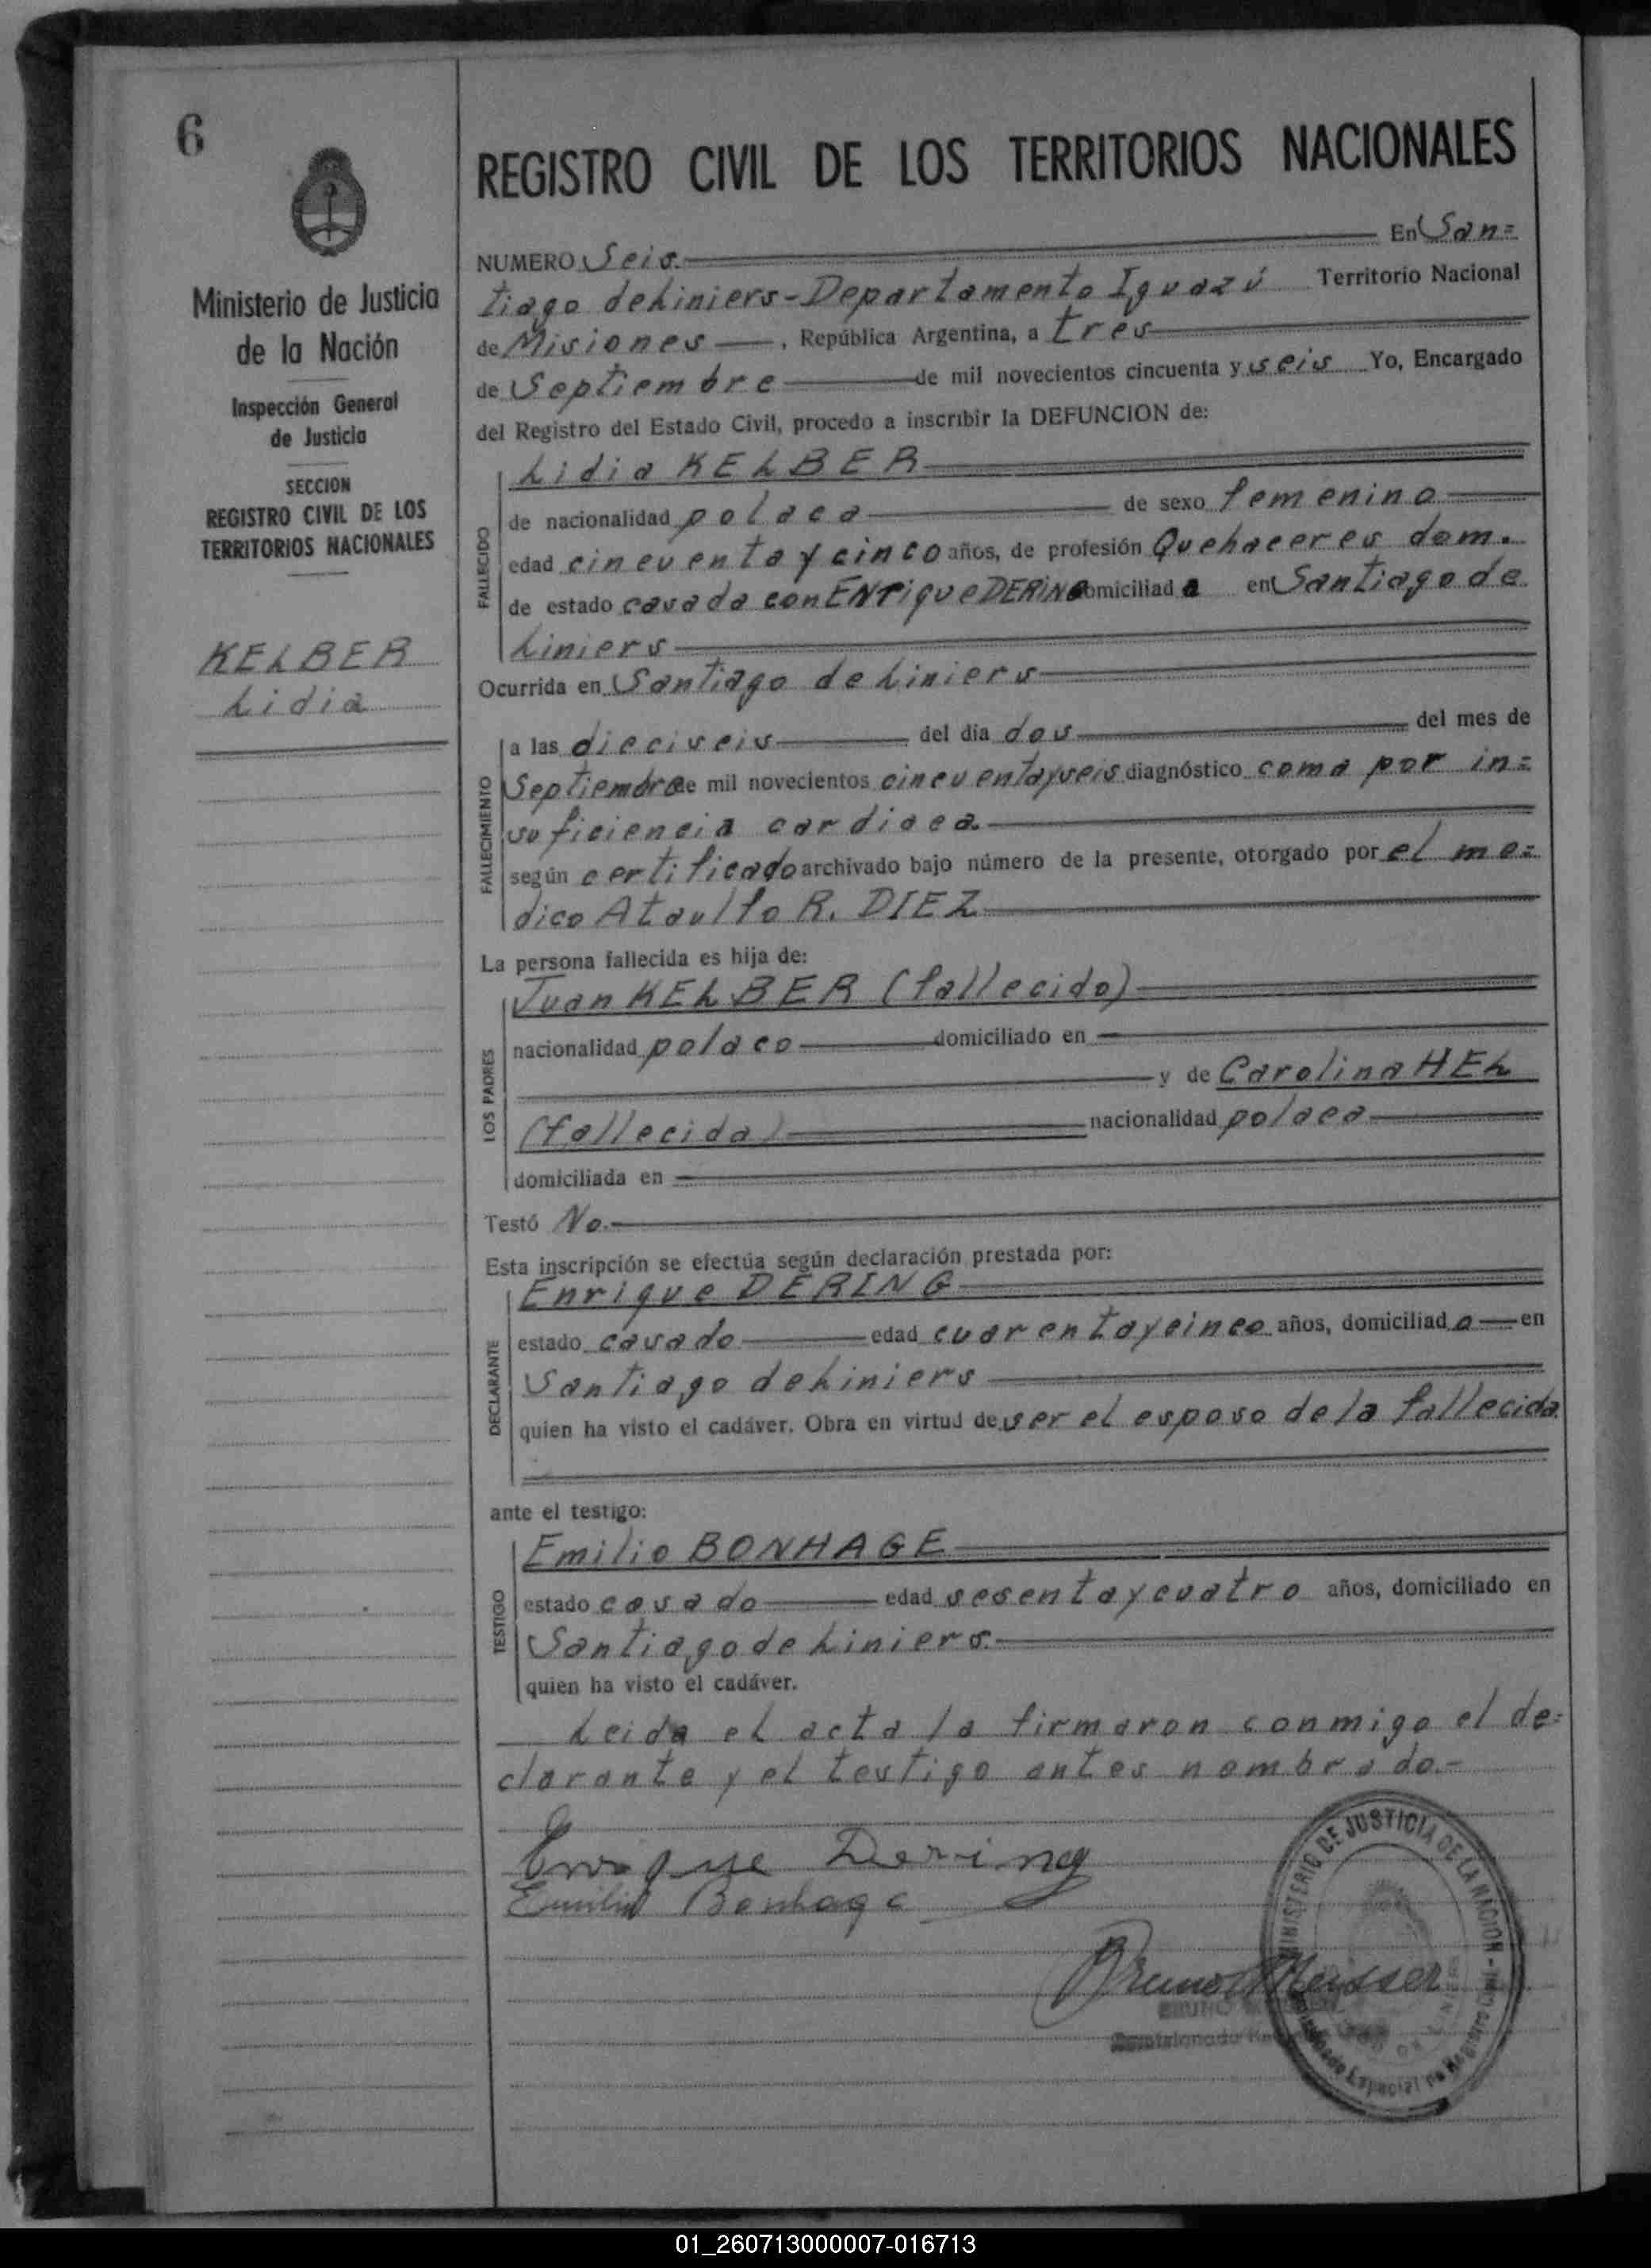 6
Ministerio de Justicia
de la Nación
Inspección General
de Justicia
SECCION
REGISTRO CIVIL DE LOS
TERRITORIOS NACIONALES
KELBER
Lidia
REGISTRO CIVIL DE LOS TERRITORIOS NACIONALES
NUMERO Seis. En San=
tiago de Liniers - Departamento Iguazú Territorio Nacional
de Misiones, República Argentina, a tres
de Septiembre de mil novecientos cincuenta y seis Yo, Encargado
del Registro del Estado Civil, procedo a inscribir la DEFUNCION de:
FALLECIDO
Lidia KELBER
de nacionalidad polaca de sexo femenino
edad cincuenta y cinco años, de profesión Quehaceres dom.
de estado casada con ENrique DERING domiciliad a en Santiago de
Liniers
Ocurrida en Santiago de Liniers
FALLECIMIENTO
a las dieciseis del día dos del mes de
Septiembre de mil novecientos cincuentayseis diagnóstico coma por in=
suficiencia cardiaca.
según certificado archivado bajo número de la presente, otorgado por el me=
dico Ataulfo R. DIEZ
La persona fallecida es hija de:
LOS PADRES
Juan KELBER (fallecido)
nacionalidad polaco domiciliado en
y de Carolina HEL
(fallecida) nacionalidad polaca
domiciliada en
Testó No.
Esta inscripción se efectúa según declaración prestada por:
DECLARANTE
Enrique DERING
estado casado edad cuarentaycinco años, domiciliad o en
Santiago de Liniers
quien ha visto el cadáver. Obra en virtud de ser el esposo de la fallecida
ante el testigo:
TESTIGO
Emilio BONHAGE
estado casado edad sesentaycuatro años, domiciliado en
Santiago de Liniers.
quien ha visto el cadáver.
Leida el acta la firmaron conmigo el de=
clarante y el testigo antes nombrado.-
Enrique Dering
Emilio Bonhage
Bruno
BRUNO
MINISTERIO DE JUSTICIA DE LA NACION -
Especial de Registro Civil
01_260713000007-016713